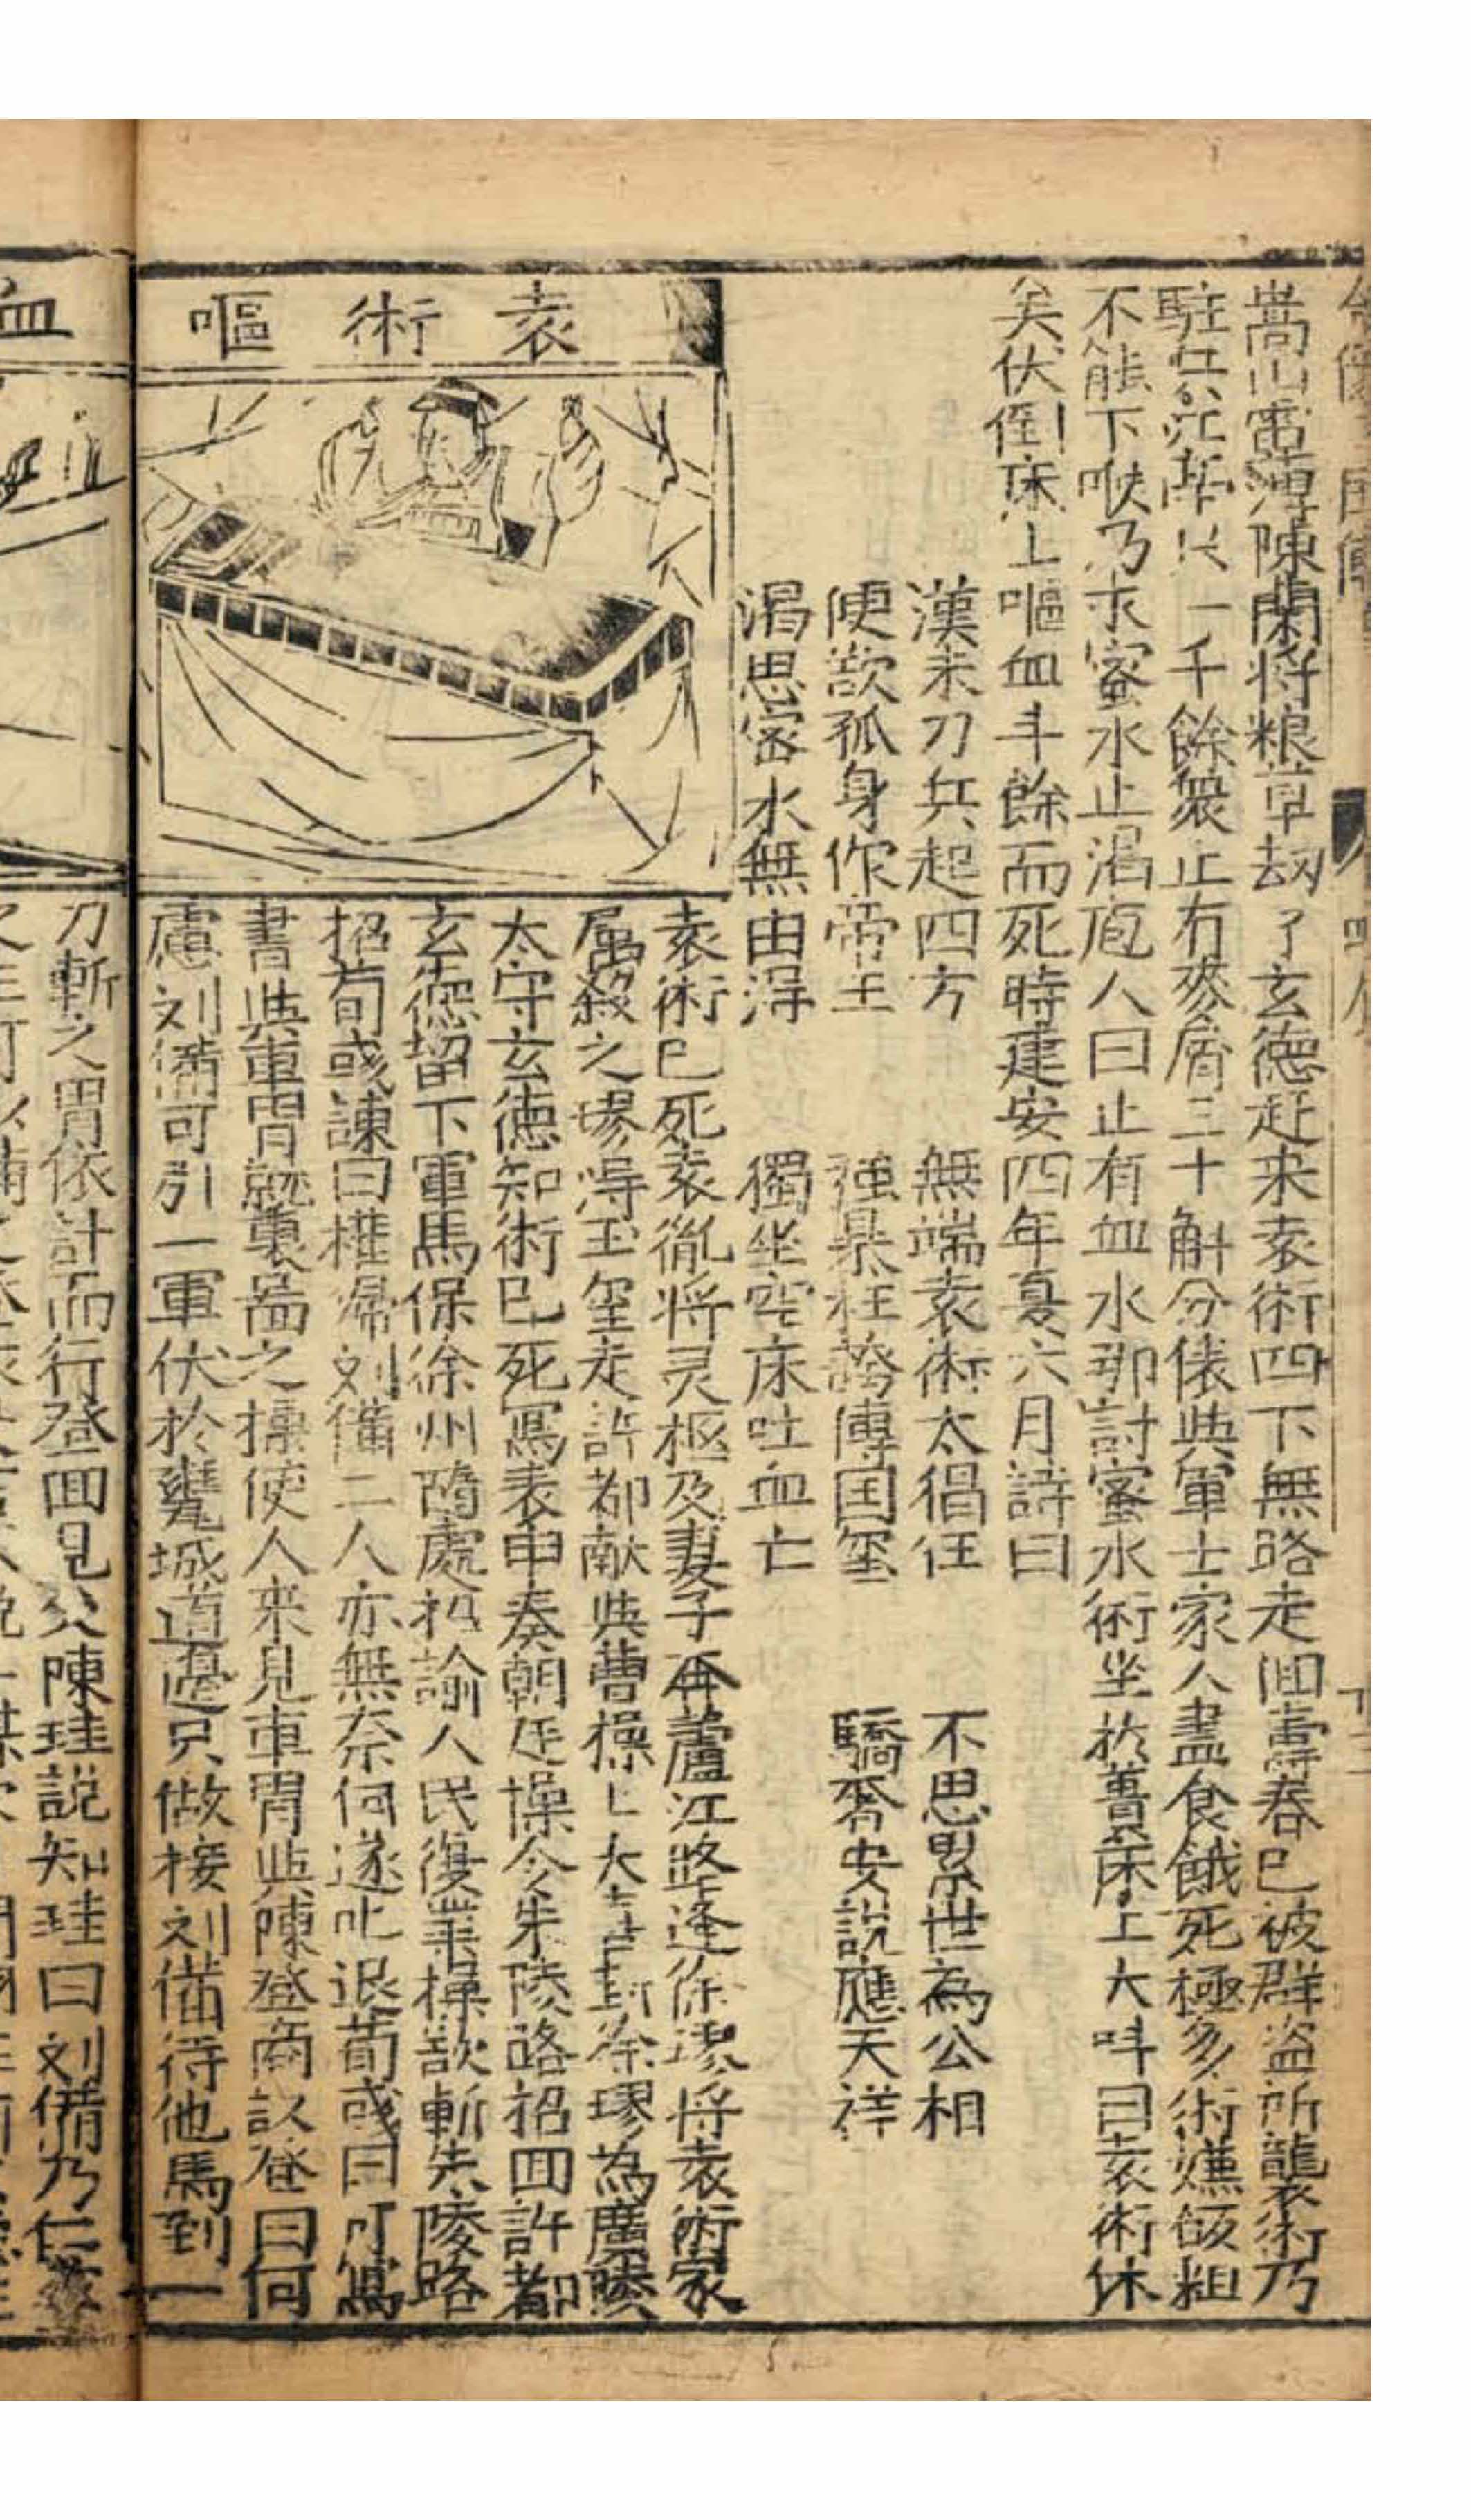 嵩山雷薄陳蘭将粮草刼了玄德赶来袁術四下無路走囬壽春已被群盗所襲術乃
駐兵江亭只一千餘衆止有麥屑三十斛分俵與軍士家人盡食餓死極多術嫌飯粗
不能下喉乃求蜜水止渴庖人曰止有血水那討蜜水術坐於簀床上大呌曰袁術休
矣伏倒床上嘔血斗餘而死時建安四年夏六月詩曰
漢末刀兵起四方 無端袁術太猖狂 不思累世為公相
便欲孤身作帝王 強暴枉誇傳国玺 驕奢妄説應天祥
渴思密水無由得 獨坐空床吐血亡
袁術嘔
袁術已死袁胤将灵柩及妻子再蘆江路逢徐璆将袁術家
属殺之璆得玉玺走許都献與曹操上大喜封徐璆為廣陵
太守玄德知術已死寫表申奏朝廷操令朱陵路招囬許都
玄德留下軍馬保徐州隨處招諭人民復業操欲斬朱陵路
招荀彧諫曰權歸刘備二人亦無奈何遂叱退荀彧曰可寫
書與車胄就裏啚之操使人来見車胄與陳登商议登曰何
慮刘備可引一軍伏於甕城道邊只做接刘備待他馬到一
血
刀斬之胃依計而行登囬見父陳珪説知珪曰刘備乃仁